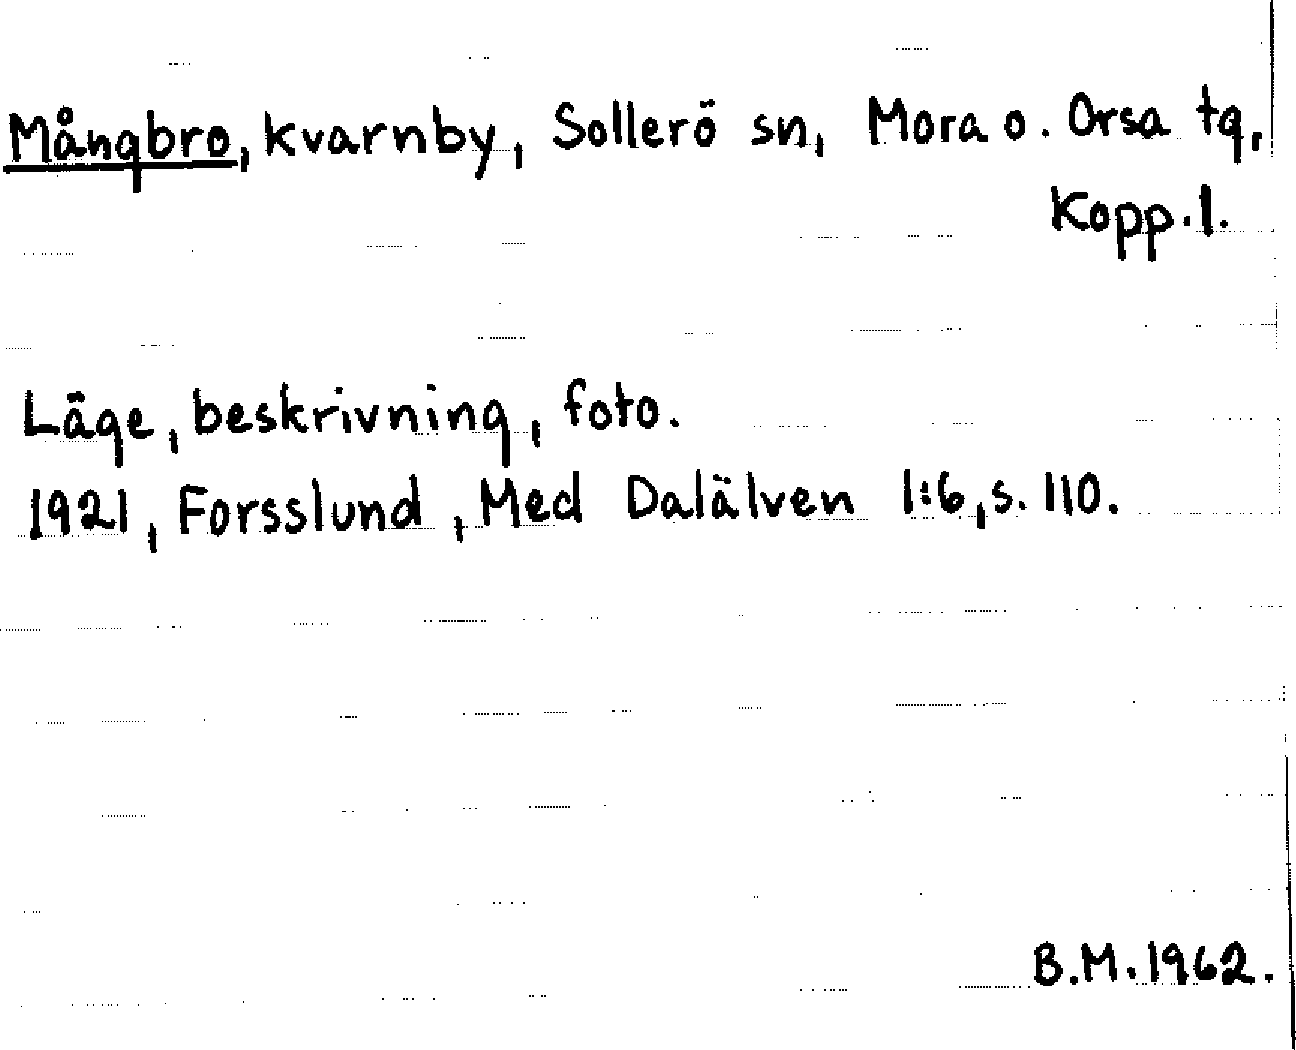 Mångbro, kvarnby, Sollerö sn, Mora o. Orsa tg,
Kopp. l.
Läge, beskrivning, foto.
1921, Forsslund, Med Dalälven 1:6, s. 110.
B.M. 1962.